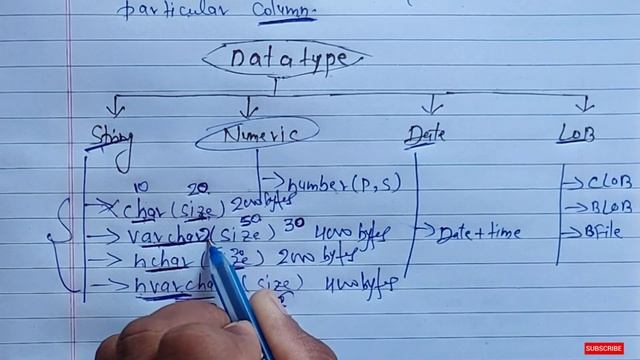 particular Column.
Datatype
String Numeric Date LOB
10 20
char(size) 2000 bytes
number(P,S)
CLOB
50 30
varchar2(size) 4000 bytes
Date+time
BLOB
nchar 2000 bytes
BFile
nvarchar (size) 4000 bytes
SUBSCRIBE